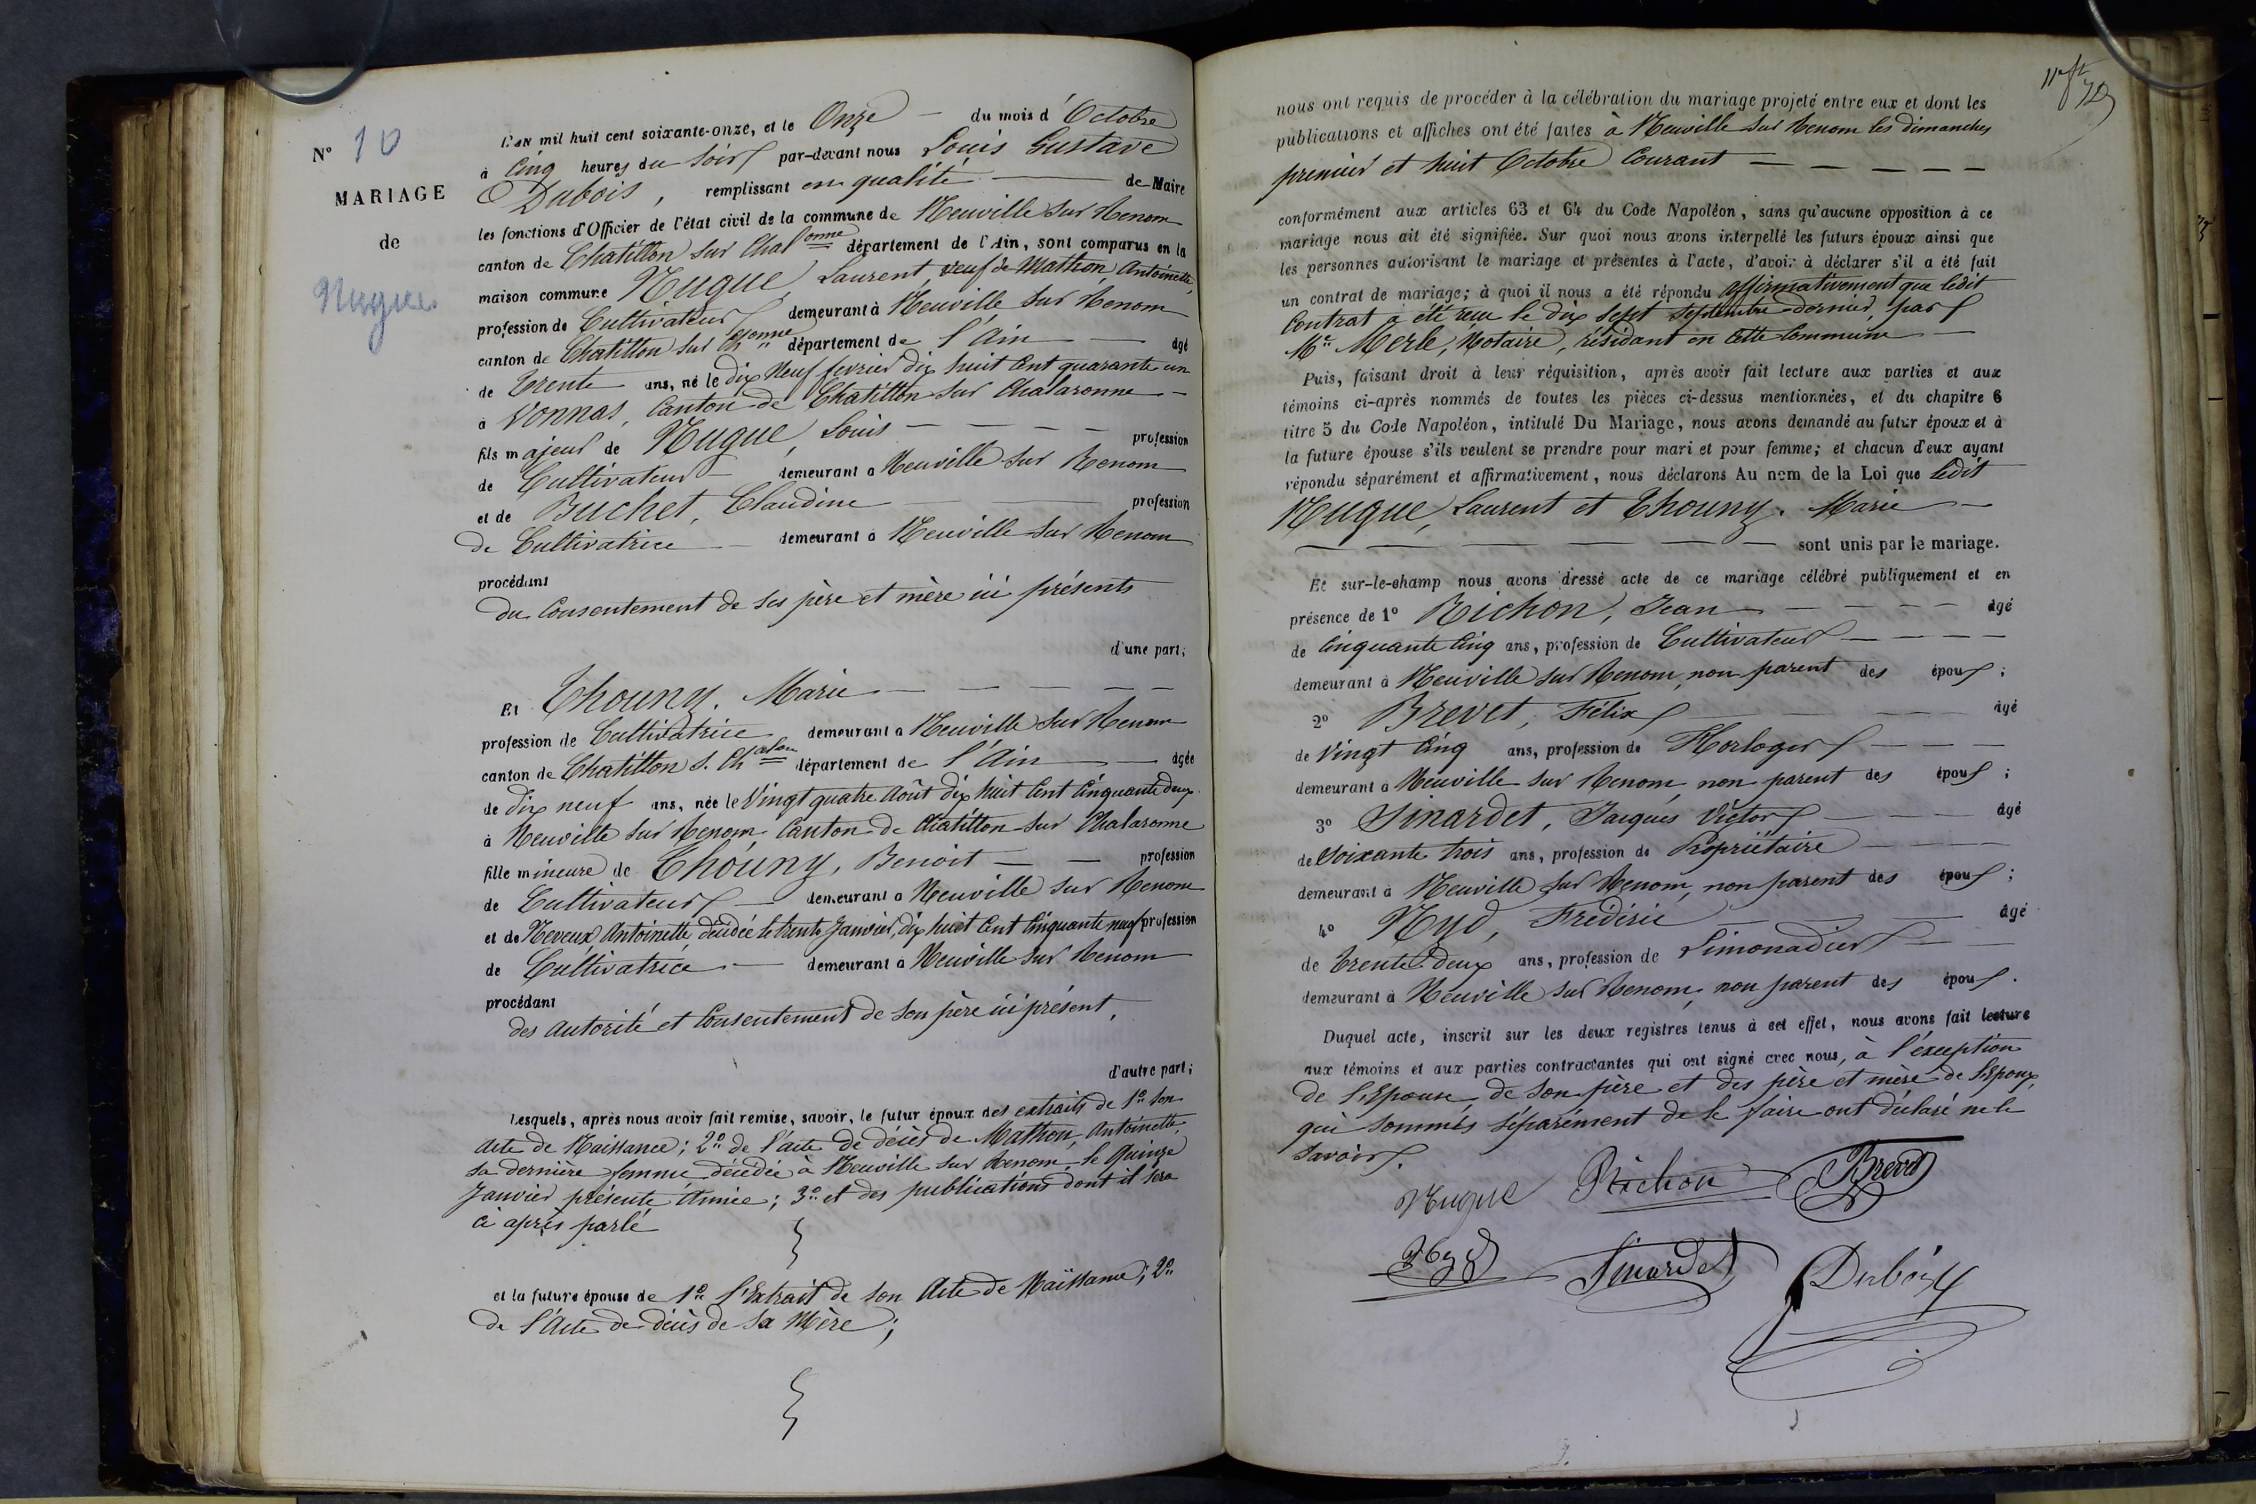 N° 10
MARIAGE
de
Nugue
L'AN mil huit cent soixante-onze, et le Onze — du mois d'Octobre
à Cinq heures du Soir par-devant nous Louis Gustave
Dubois, remplissant en qualité — de Maire
les fonctions d'Officier de l'état civil de la commune de Neuville sur Renom
canton de Chatillon sur Chalonne département de l'Ain, sont comparus en la
maison commune Nugue Laurent, veuf de Mathon Antoinette,
profession de Cultivateur demeurant à Neuville sur Renom
canton de Chatillon sur Chonne département de l'Ain — âgé
de trente ans, né le dix Neuf fevrier dix huit cent quarante un
à Vonnas, Canton de Chatillon sur Chalaronne —
fils majeur de Nugue, Louis — — — — profession
de Cultivateur — demeurant à Neuville sur Renom
et de Buchet, Claudine — — profession
de Cultivatrice — demeurant à Neuville sur Renom
procédant
du Consentement de ses père et mère ici présents
d'une part;
Et Thouny. Marie — — — — —
profession de Cultivatrice demeurant à Neuville sur Renom
canton de Chatillon s. Chalon département de l'Ain — âgée
de dix neuf ans, née le Vingt quatre Août dix huit Cent Cinquante deux
à Neuville sur Renom, Canton de Chatillon sur Chalaronne
fille mineure de Thouny, Benoit — — profession
de Cultivateur — demeurant à Neuville sur Renom
et de Neveux Antoinette, décédée le trente Janvier, dix huit Cent Cinquante neuf profession
de Cultivatrice — demeurant à Neuville sur Renom
procédant
des autorité et Consentement de son père ici présent,
d'autre part;
Lesquels, après nous avoir fait remise, savoir, le futur époux des extraits de 1° son
Acte de Naissance; 2° de l'acte de décès de Mathon, Antoinette,
sa dernière femme décédée à Neuville sur Renom, le Quinze
Janvier présente Année; 3° et des publications dont il sera
ci après parlé
et la future épouse de 1° l'Extrait de son Acte de Naissance; 2°
de l'Acte de décès de sa Mère;
nous ont requis de procéder à la célébration du mariage projeté entre eux et dont les
publications et affiches ont été faites à Neuville sur Renom les dimanches
premier et huit Octobre Courant — — — — —
conformément aux articles 63 et 64 du Code Napoléon, sans qu'aucune opposition à ce
mariage nous ait été signifiée. Sur quoi nous avons interpellé les futurs époux ainsi que
les personnes autorisant le mariage et présentes à l'acte, d'avoir à déclarer s'il a été fait
un contrat de mariage; à quoi il nous a été répondu affirmativement que ledit
Contrat a été reçu le dix sept septembre dernier, par
Me Merle, Notaire, résidant en cette Commune —
Puis, faisant droit à leur réquisition, après avoir fait lecture aux parties et aux
témoins ci-après nommés de toutes les pièces ci-dessus mentionnées, et du chapitre 6
titre 5 du Code Napoléon, intitulé Du Mariage, nous avons demandé au futur époux et à
la future épouse s'ils veulent se prendre pour mari et pour femme; et chacun d'eux ayant
répondu séparément et affirmativement, nous déclarons Au nom de la Loi que ledit
Nugue, Laurent et Thouny. Marie —
— — — — — sont unis par le mariage.
Et sur-le-champ nous avons dressé acte de ce mariage célébré publiquement et en
présence de 1° Richon, Jean — — — — âgé
de Cinquante Cinq ans, profession de Cultivateur — — — —
demeurant à Neuville sur Renom, non parent des époux;
2° Brevet, Félix — — — âgé
de Vingt Cinq ans, profession de Horloger — — —
demeurant à Neuville sur Renom, non parent des époux;
3° Sinardet, Jacques Victor — — — âgé
de Soixante trois ans, profession de Propriétaire — — —
demeurant à Neuville sur Renom, non parent des époux;
4° Nyd, Frédéric — — — âgé
de trente deux ans, profession de Limonadier — —
demeurant à Neuville sur Renom, non parent des époux.
Duquel acte, inscrit sur les deux registres tenus à cet effet, nous avons fait lecture
aux témoins et aux parties contractantes qui ont signé avec nous, à l'exception
de l'Epouse, de son père et des père et mère de l'Epoux,
qui sommés séparément de le faire ont déclaré ne le
savoir.
Nugue Richon Brevet
Sinardet Dubois